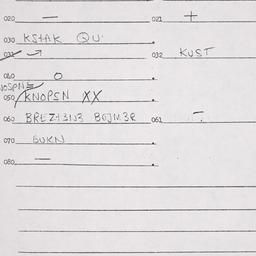 020 — 021 +
030 KSTAK QU.
031 → 032 KUST
040 O
050 KNOPSN XX
060 BREZ43N3 BOJM3R 061 —.
070 BUKN
080 —